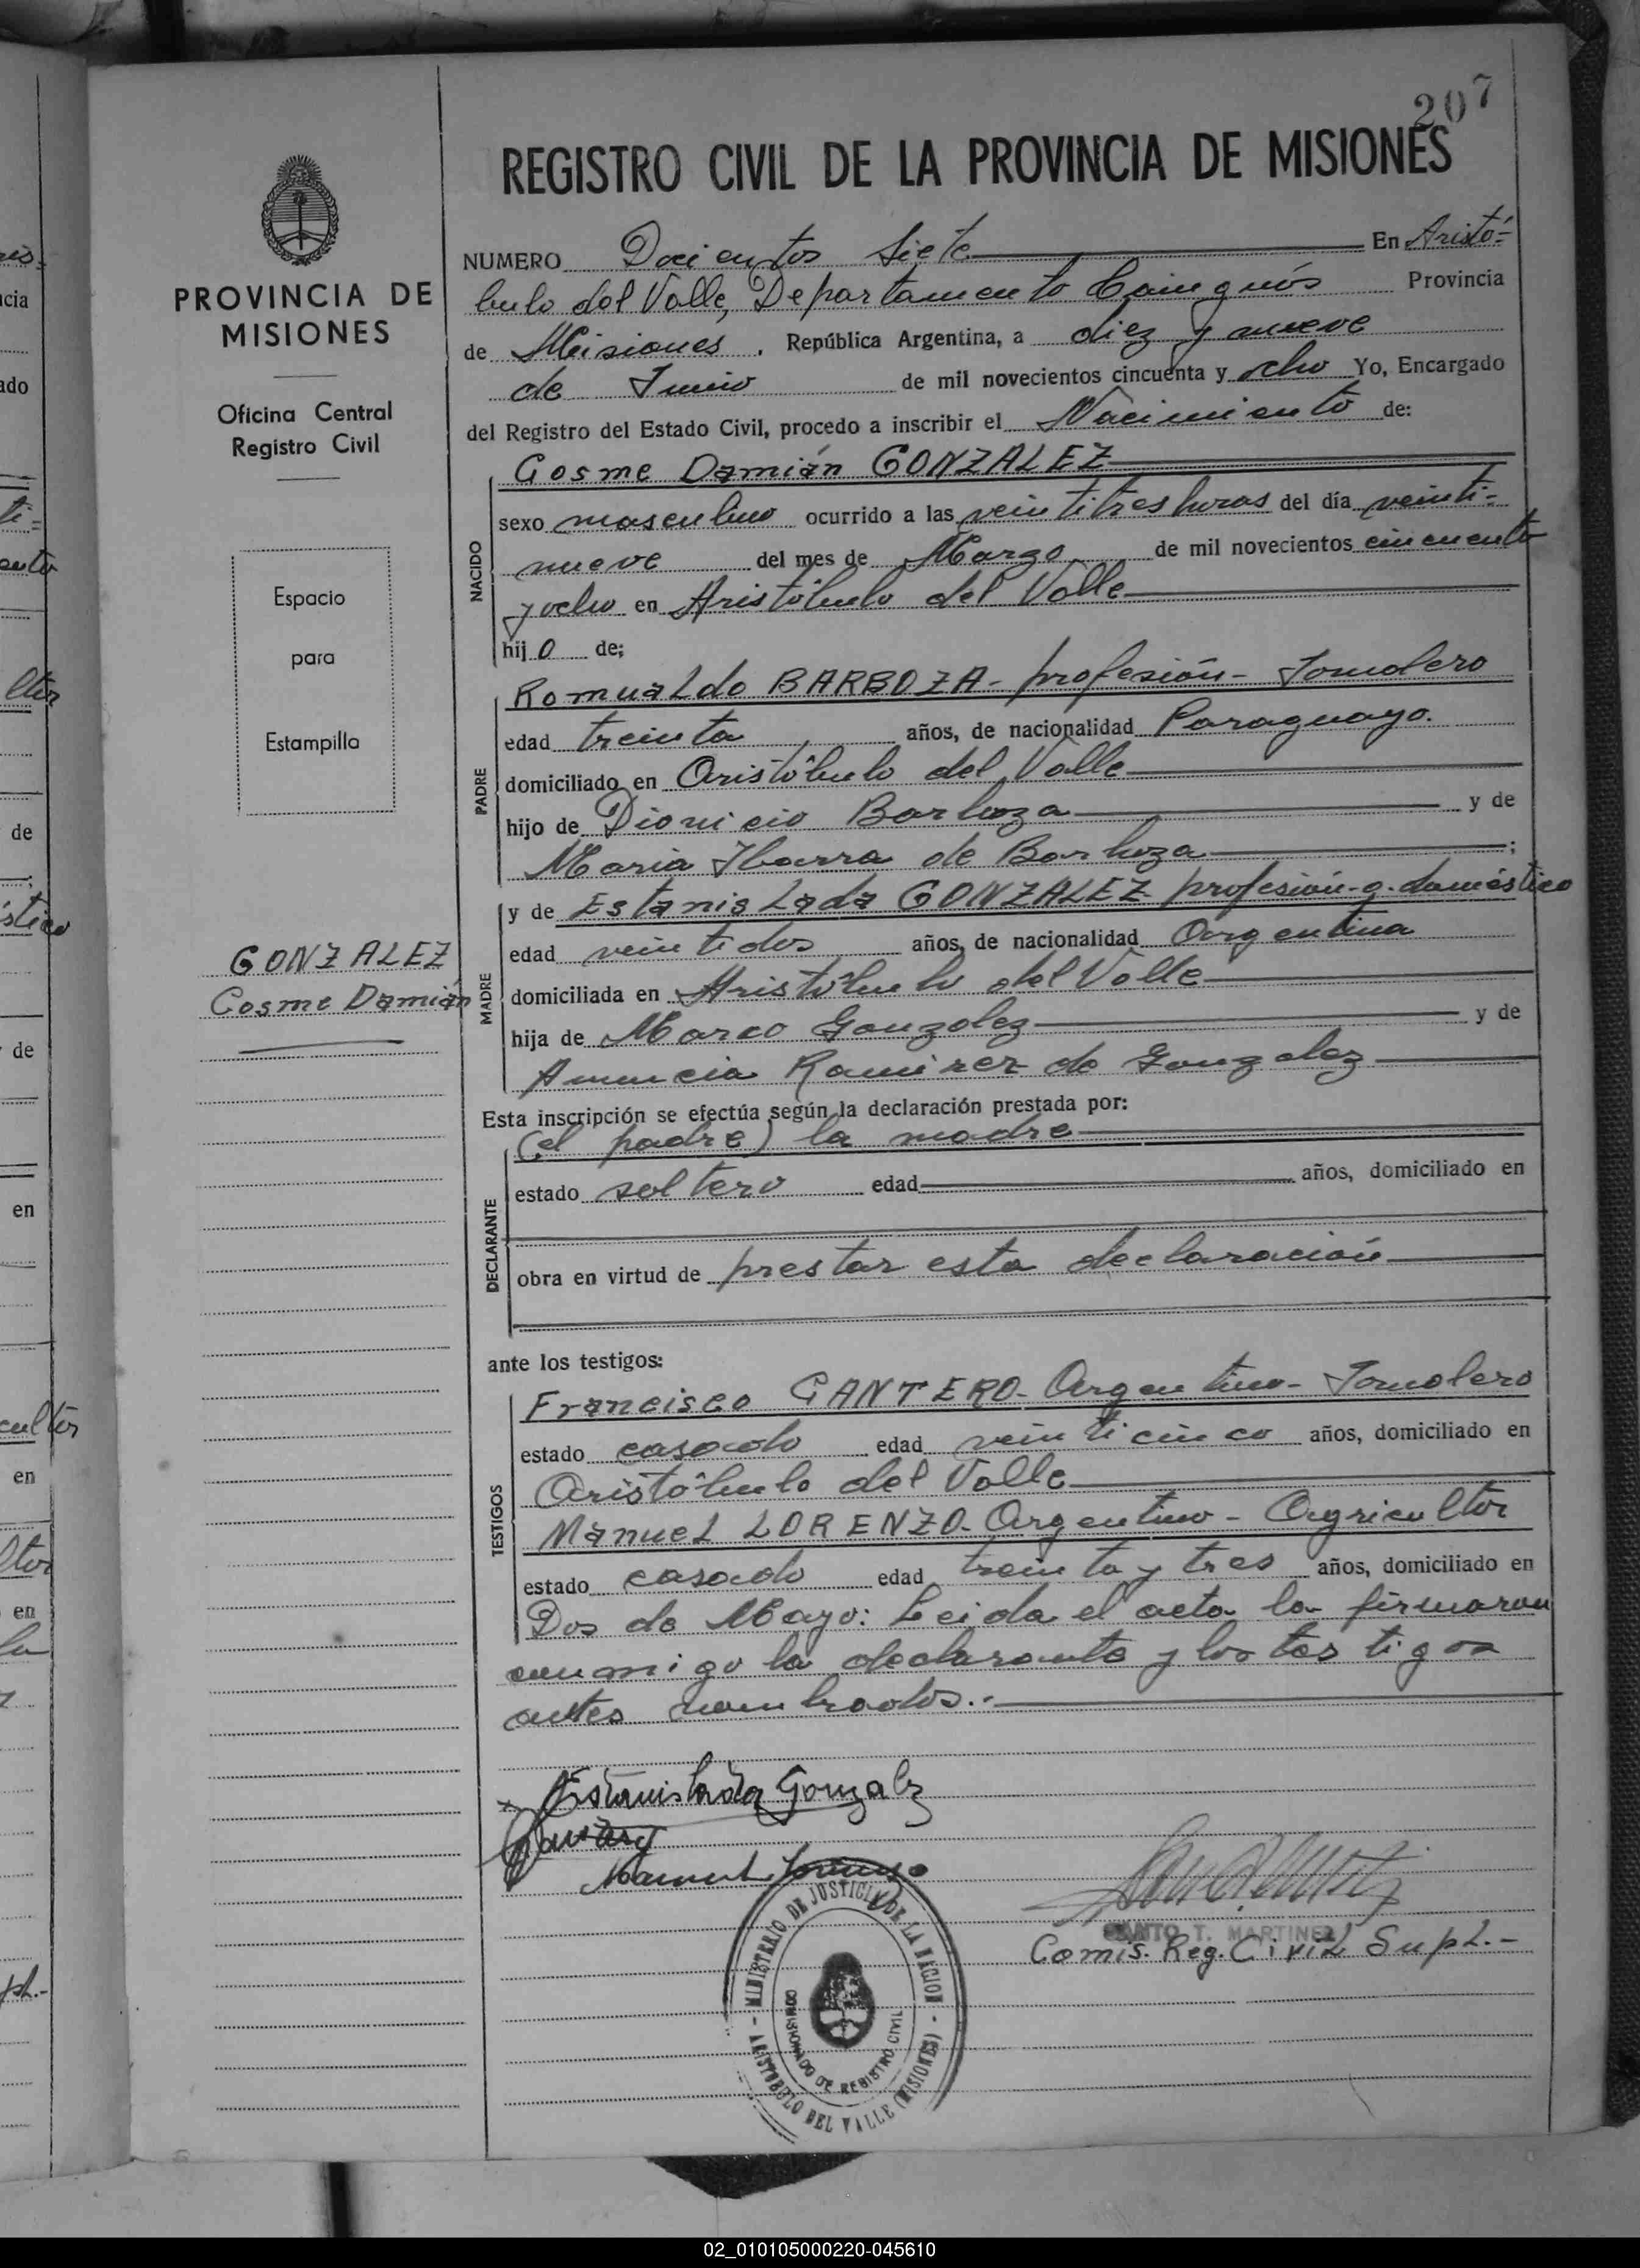 207
REGISTRO CIVIL DE LA PROVINCIA DE MISIONES
PROVINCIA DE
MISIONES
Oficina Central
Registro Civil
Espacio
para
Estampilla
GONZALEZ
Cosme Damián
NUMERO Docientos Siete En Aristó=
bulo del Valle, Departamento Cainguás Provincia
de Misiones, República Argentina, a diez y nueve
de Junio de mil novecientos cincuenta y ocho Yo, Encargado
del Registro del Estado Civil, procedo a inscribir el Nacimiento de:
NACIDO
Cosme Damián GONZALEZ
sexo masculino ocurrido a las veintitres horas del día veinti=
nueve del mes de Marzo de mil novecientos cincuenta
y ocho en Aristóbulo del Valle
hijo de;
PADRE
Romualdo BARBOZA- profesión- Jornalero
edad treinta años, de nacionalidad Paraguayo.
domiciliado en Aristóbulo del Valle
hijo de Dionicio Barboza y de
Maria Ibarra de Barboza ;
MADRE
y de Estanislada GONZALEZ profesión-q. doméstico
edad veintidos años, de nacionalidad Argentina
domiciliada en Aristóbulo del Valle
hija de Marco Gonzalez y de
Anuncia Ramirez de Gonzalez
Esta inscripción se efectúa según la declaración prestada por:
DECLARANTE
(el padre) la madre
estado soltero edad años, domiciliado en
obra en virtud de prestar esta declaración
ante los testigos:
TESTIGOS
Francisco CANTERO- Argentino- Jornalero
estado casado edad veinticinco años, domiciliado en
Aristóbulo del Valle
Manuel LORENZO- Argentino- Agricultor
estado casado edad treinta y tres años, domiciliado en
Dos de Mayo: Leida el acta la firmaron
conmigo la declarante y los testigos
antes nombrados.-
Estanislada Gonzalz
Manuel Lorenzo
SANTO T. MARTINEZ
Comis. Reg. Civil Supl.-
MINISTERIO DE JUSTICIA DE LA NACION
COMISIONADO DE REGISTRO CIVIL
ARISTOBULO DEL VALLE (MISIONES)
02_010105000220-045610